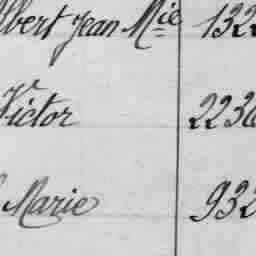 Albert Jean M.ie 132
Victor 2236
Marie 932